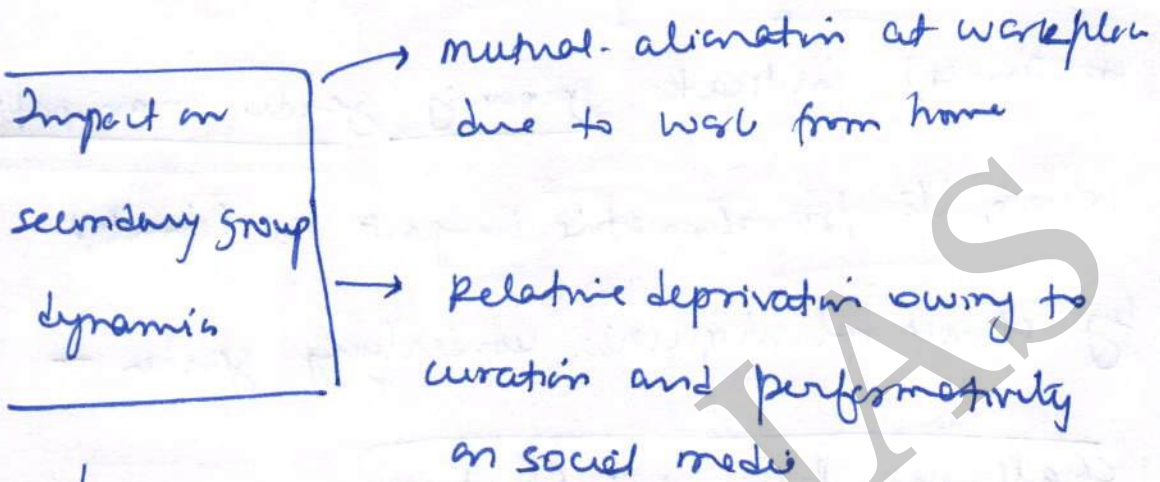 Impact on
secondary group
dynamics
→ mutual-alienation at workplace
due to work from home
→ Relative deprivation owing to
curation and performativity
on social media
IAS